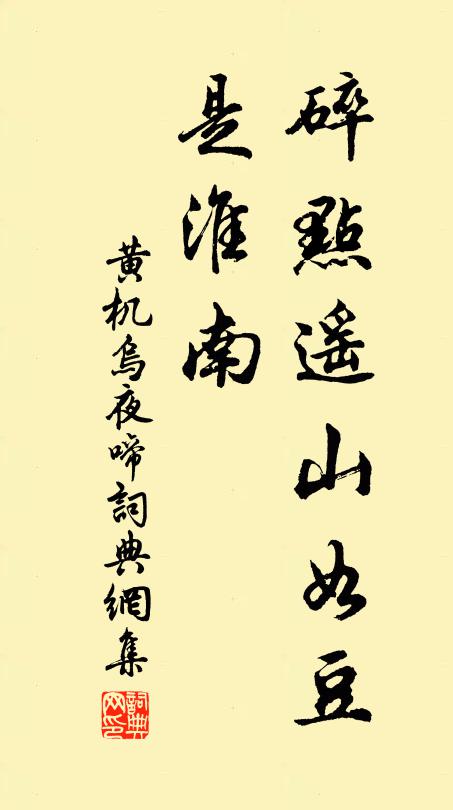 碎點遥山如豆
是淮南
黄机烏夜啼詞典網集
詞典网印